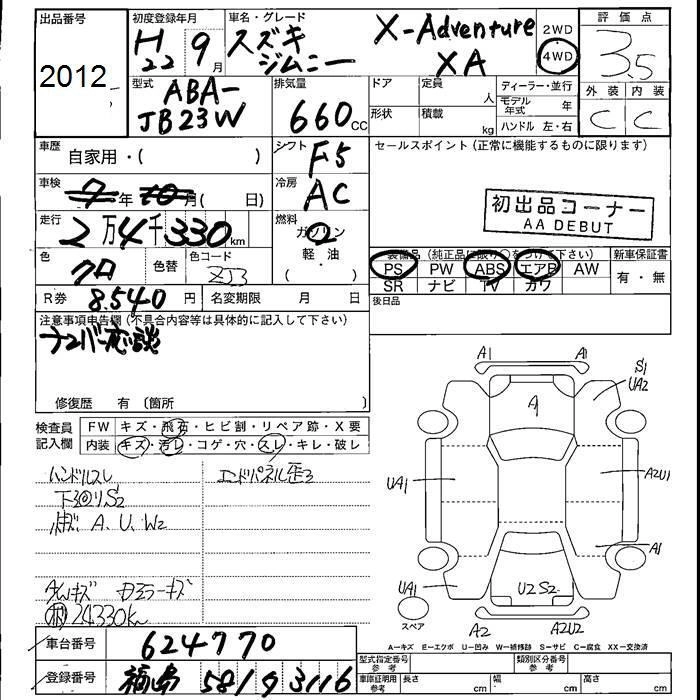 出品番号 初度登録年月 車名・グレード 2WD 評価点
2012 H22 9月 スズキ ジムニー X-Adventure XA 4WD 3.5
型式 排気量 ドア 定員 人 ディーラー・並行 外装 内装
ABA-JB23W 660cc 形状 積載 kg モデル年式 年 C C
ハンドル 左・右
車歴 自家用・( ) シフト F5 セールスポイント(正常に機能するものに限ります)
車検 年 月( 日) 冷房 AC
初出品コーナー
AA DEBUT
走行 2万4千330km 燃料 ガソリン
軽・油
( )
装備品(純正品に限り○をつけて下さい) 新車保証書
色 クロ 色替 色コード ZJ3 PS PW ABS エアB AW 有・無
SR ナビ TV カワ
R券 8.540円 名変期限 月 日 後日品
注意事項申告欄(不具合内容等は具体的に記入して下さい)
ナンバー応談
修復歴 有 〔箇所 〕
検査員記入欄 FW キズ・飛石・ヒビ割・リペア跡・X要
内装 キズ・汚レ・コゲ・穴・スレ・キレ・破レ
ハンドルスレ エンドパネル歪ミ
下回リS2
A、U、W2
キズ
24330km
A1 A1 S1
UA2
A
UA1 A2U1
A1
UA1 U2S2
スペア A2 A2U2
A-キズ E-エクボ U-凹み W-補修跡 S-サビ C-腐食 XX-交換済
車台番号 624770 型式指定番号 参考 類別区分番号 参考
登録番号 福島 581 9 3116 車庫証明用 参考 長さ cm 幅 cm 高さ cm